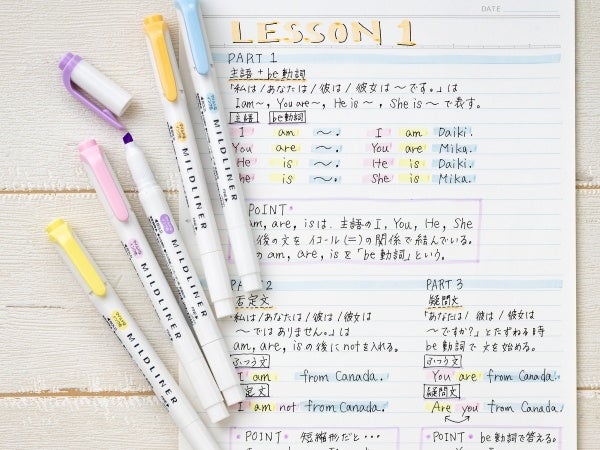 DATE
LESSON 1
PART 1
主語 + be動詞
「私は/あなたは/彼は/彼女は〜です。」は
I am〜, You are〜, He is〜, She is〜で表す。
主語 be動詞
I am 〜. I am Daiki.
You are 〜. You are Mika.
He is 〜. He is Daiki.
he is 〜. She is Mika.
POINT
am, are, isは、主語のI, You, He, She
後の文をイコール(=)の関係で結んでいる。
の am, are, isを「be動詞」という。
2
否定文
私は/あなたは/彼は/彼女は
〜ではありません。」は
am, are, isの後にnotを入れる。
ふつう文
I am from Canada.
定文
I am not from Canada.
POINT 短縮形だと…
PART 3
疑問文
「あなたは/彼は/彼女は
〜ですか?」とたずねる時
be動詞で文を始める。
ふつう文
You are from Canada.
疑問文
Are you from Canada
POINT be動詞で答える。
MILDLINER
MILDLINER
MILDLINER
MILDLINER
MILDLINER